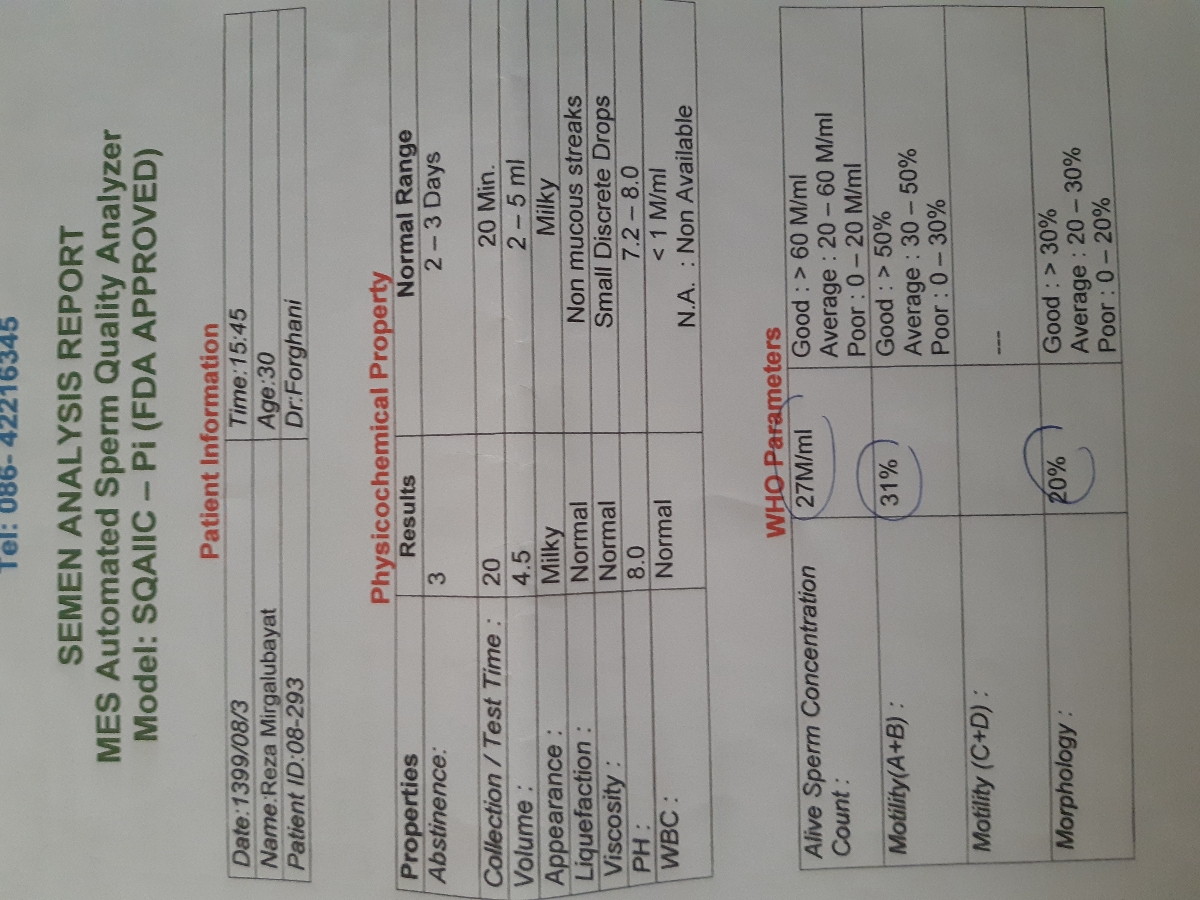 Tel: 086- 42216345
SEMEN ANALYSIS REPORT
MES Automated Sperm Quality Analyzer
Model: SQAIIC – Pi (FDA APPROVED)
Patient Information
Date:1399/08/3 Time:15:45
Name:Reza Mirgalubayat Age:30
Patient ID:08-293 Dr:Forghani
Physicochemical Property
Properties Results Normal Range
Abstinence: 3 2 – 3 Days
Collection / Test Time : 20 20 Min.
Volume : 4.5 2 – 5 ml
Appearance : Milky Milky
Liquefaction : Normal Non mucous streaks
Viscosity : Normal Small Discrete Drops
PH : 8.0 7.2 – 8.0
WBC : Normal < 1 M/ml
N.A. : Non Available
WHO Parameters
Alive Sperm Concentration 27M/ml Good : > 60 M/ml
Count : Average : 20 – 60 M/ml
Poor : 0 – 20 M/ml
Motility(A+B) : 31% Good : > 50%
Average : 30 – 50%
Poor : 0 – 30%
Motility (C+D) : ---
Morphology : 20% Good : > 30%
Average : 20 – 30%
Poor : 0 – 20%